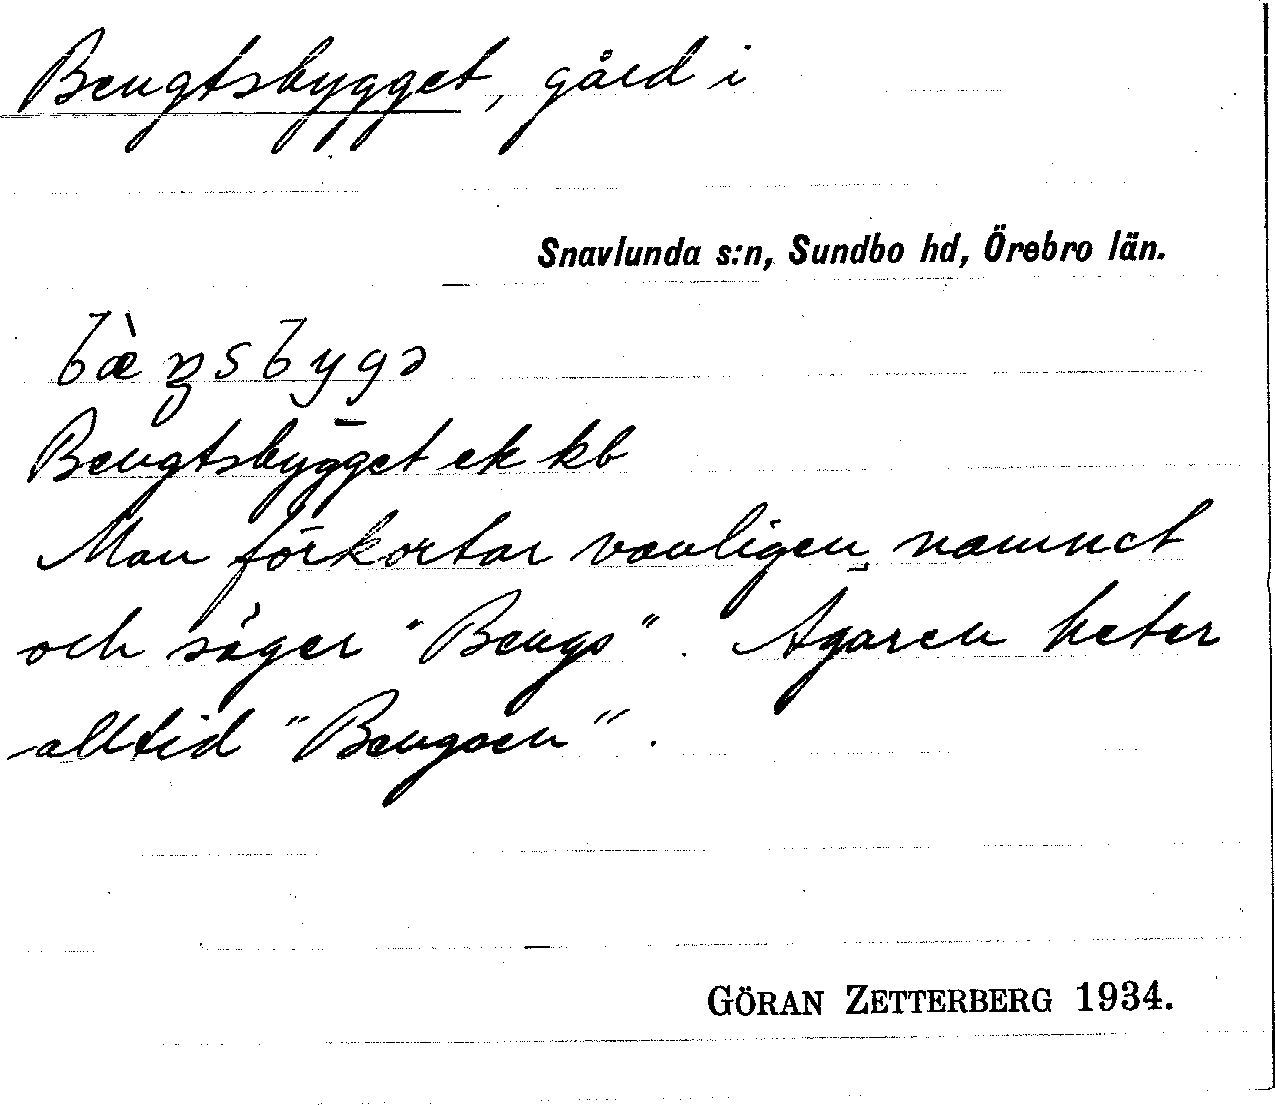 Bengtsbygget, gård i
Snavlunda s:n, Sundbo hd, Örebro län.
bæ̀ŋsbygə
Bengtsbygget ek kb
Man förkortar vanligen namnet
och säger "Bengs". Ägaren heter
alltid "Bengsen".
GÖRAN ZETTERBERG 1934.